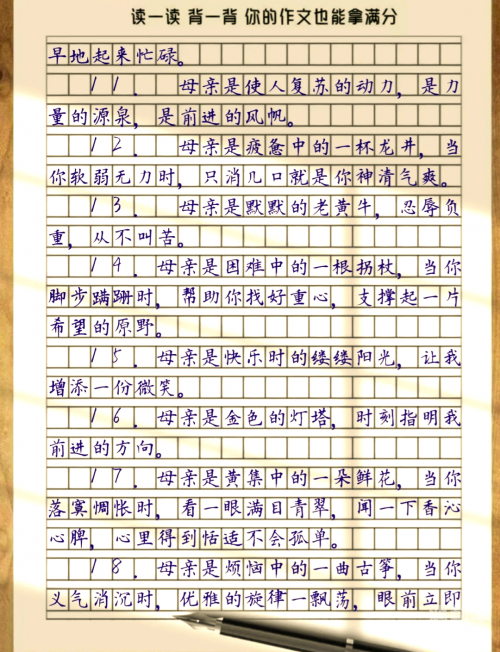 读一读 背一背 你的作文也能拿满分
早地起来忙碌。
11. 母亲是使人复苏的动力，是力
量的源泉，是前进的风帆。
12. 母亲是疲惫中的一杯龙井，当
你软弱无力时，只消几口就是你神清气爽。
13. 母亲是默默的老黄牛，忍辱负
重，从不叫苦。
14. 母亲是困难中的一根拐杖，当你
脚步蹒跚时，帮助你找好重心，支撑起一片
希望的原野。
15. 母亲是快乐时的缕缕阳光，让我
增添一份微笑。
16. 母亲是金色的灯塔，时刻指明我
前进的方向。
17. 母亲是黄集中的一朵鲜花，当你
落寞惆怅时，看一眼满目青翠，闻一下香沁
心脾，心里得到恬适不会孤单。
18. 母亲是烦恼中的一曲古筝，当你
义气消沉时，优雅的旋律一飘荡，眼前立即